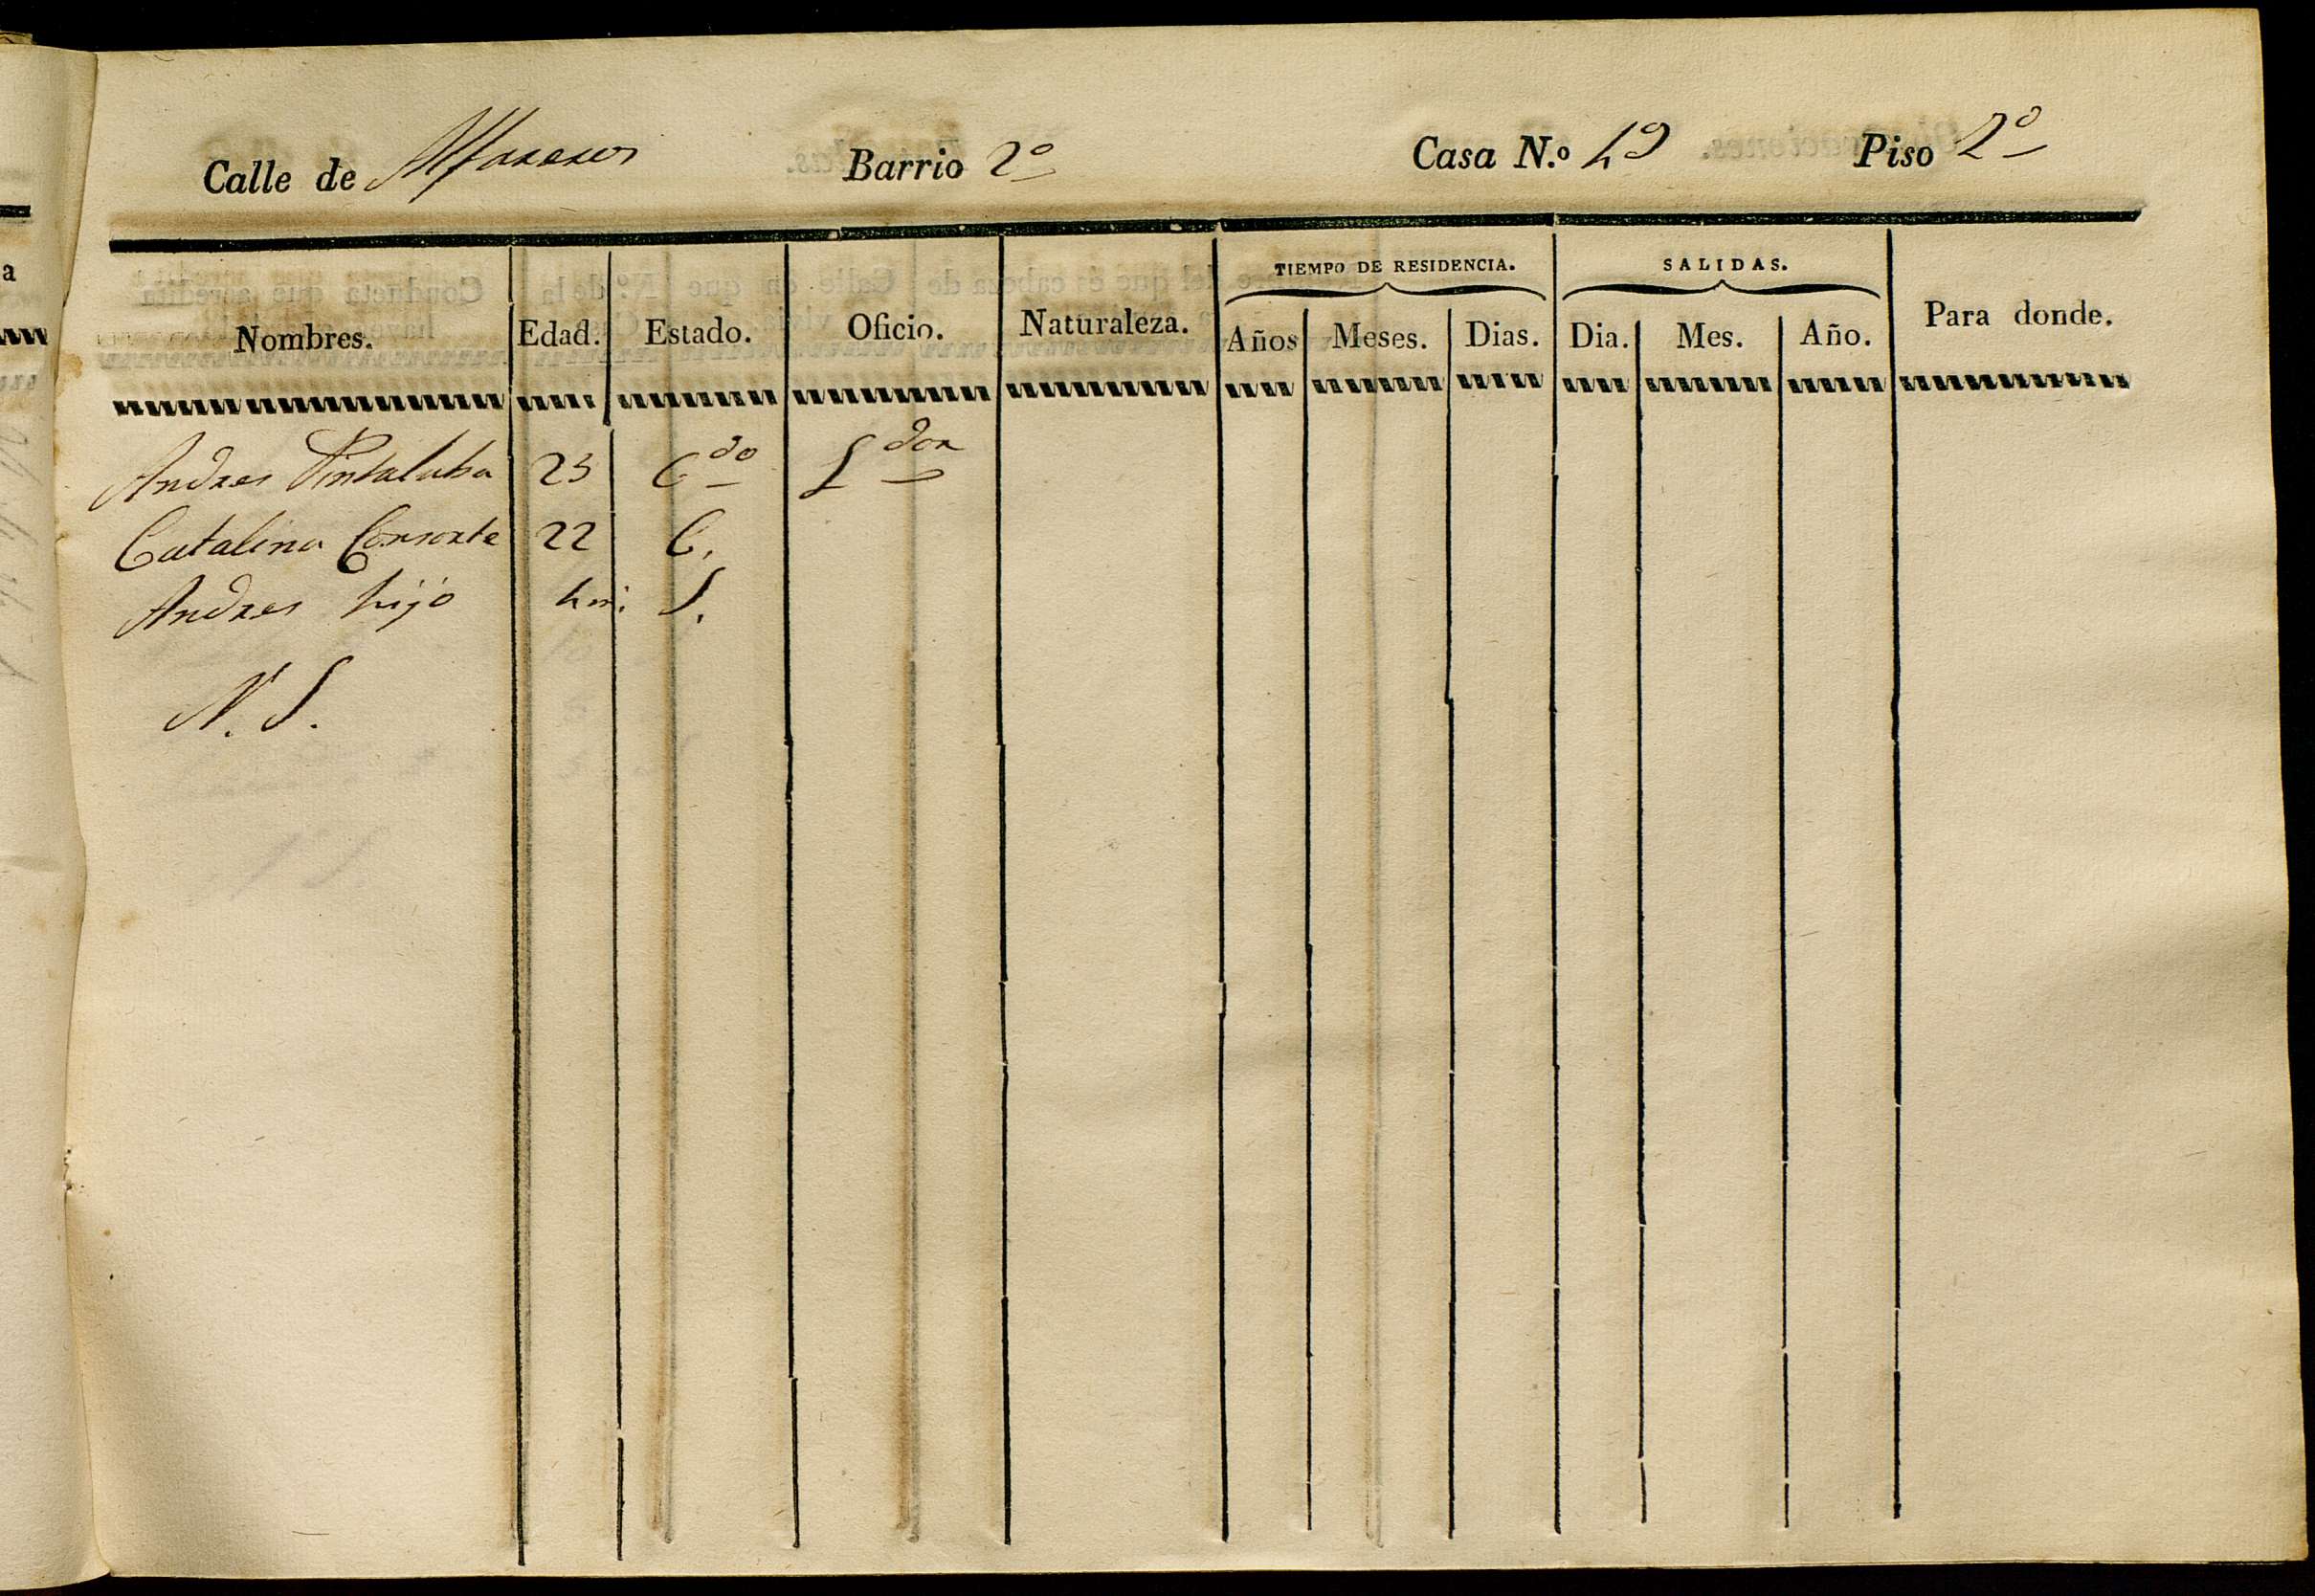 Calle de Alfareros Barrio 2º Casa N.º 49 Piso 2º
TIEMPO DE RESIDENCIA. SALIDAS.
Nombres. Edad. Estado. Oficio. Naturaleza. Años Meses. Dias. Dia. Mes. Año. Para donde.
Andres Pintaluba 23 C.do L.dor
Catalina Consorte 22 C.
Andres hijo 4 m. S.
N. S.